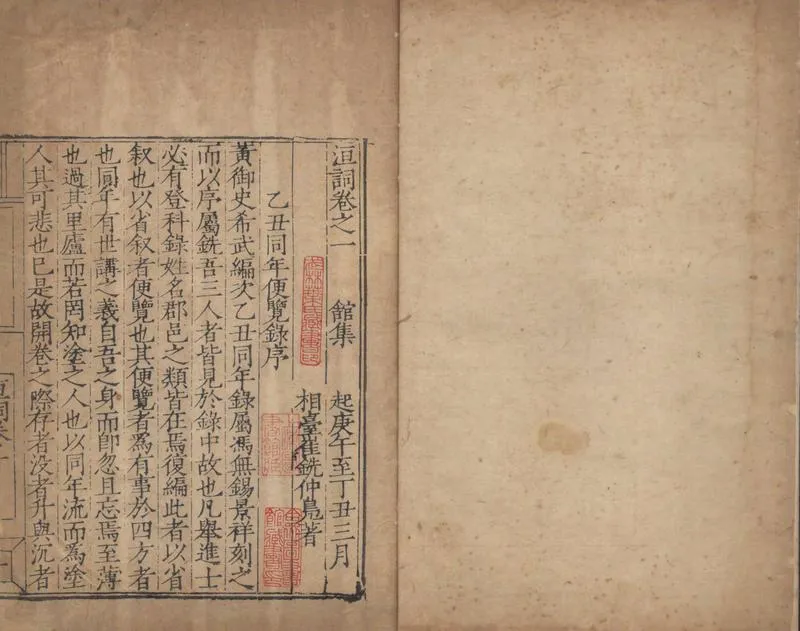 洹詞卷之一　館集　起庚午至丁丑三月
相臺崔銑仲鳧著
乙丑同年便覽錄序
黃御史希武編次乙丑同年錄屬馮無錫景祥刻之
而以序屬銑吾三人者皆見於錄中故也凡舉進士
必有登科錄姓名郡邑之類皆在焉復編此者以省
叙也以省叙者便覽也其便覽者為有事於四方者
也同年有世講之義自吾之身而即忽且忘焉至薄
也過其里廬而若罔知塗之人也以同年流而為塗
人其可悲也已是故開卷之際存者没者升與沉者